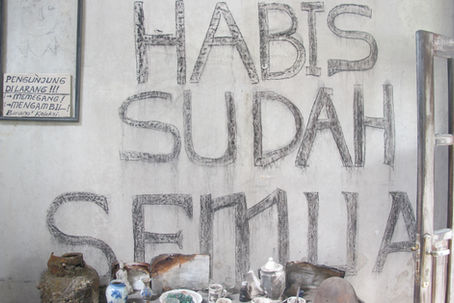 HABIS
SUDAH
SEMUA
PENGUNJUNG
DILARANG !!!
→MEMEGANG!
→MENGAMBIL...!